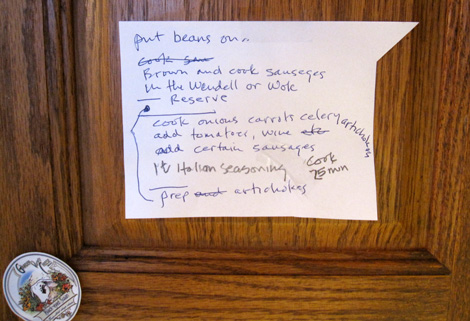 put beans on..
Cook sau
Brown and cook sausages
in the Wendell or Wok
— Reserve
cook onions carrots celery artichokes
add tomatoes, wine etc
add certain sausages
1t Italian seasoning
cook
25 min
prep and artichokes